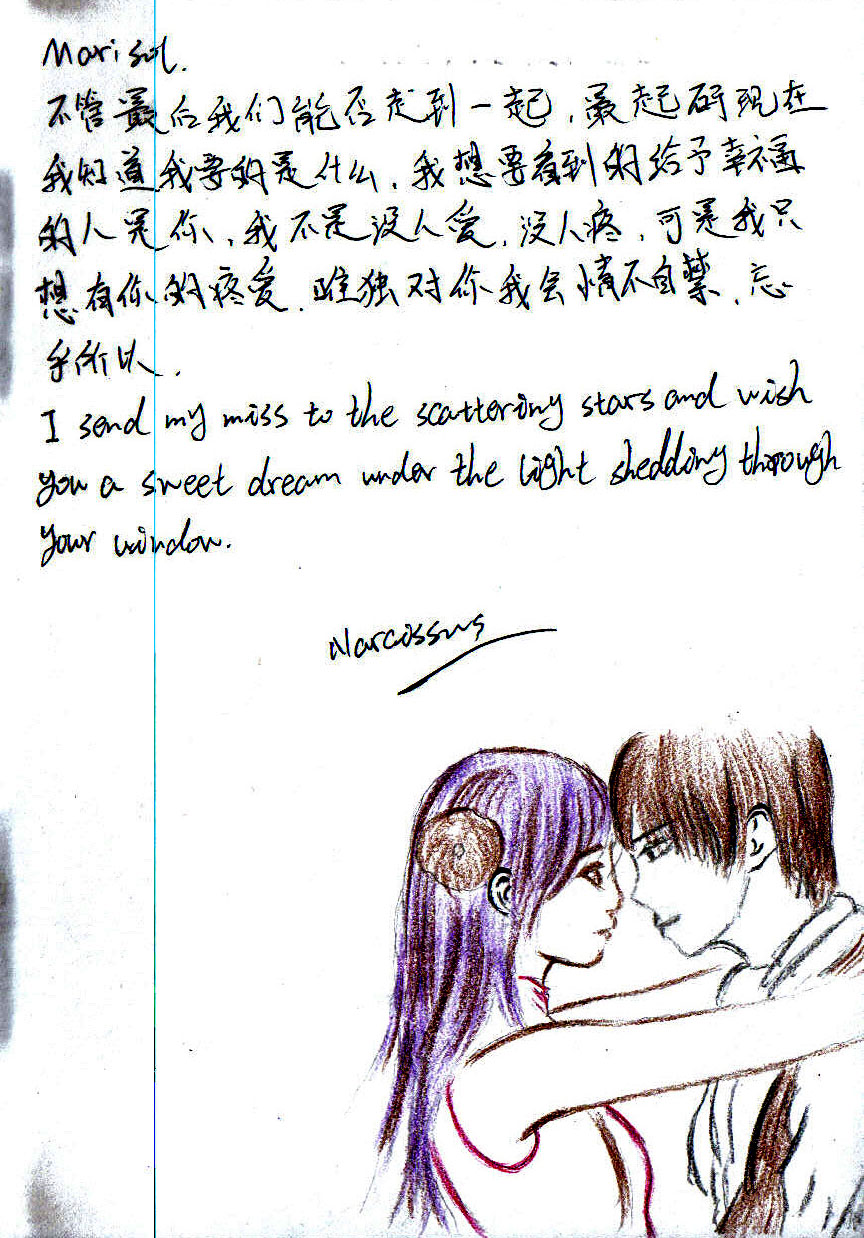 Marisol.
不管最后我们能否走到一起，最起码现在
我知道我要的是什么，我想要看到的给予幸福
的人是你，我不是没人爱，没人疼，可是我只
想有你的疼爱，唯独对你我会情不自禁，忘
乎所以.
I send my miss to the scattering stars and wish
you a sweet dream under the light shedding through
your window.
Narcissus